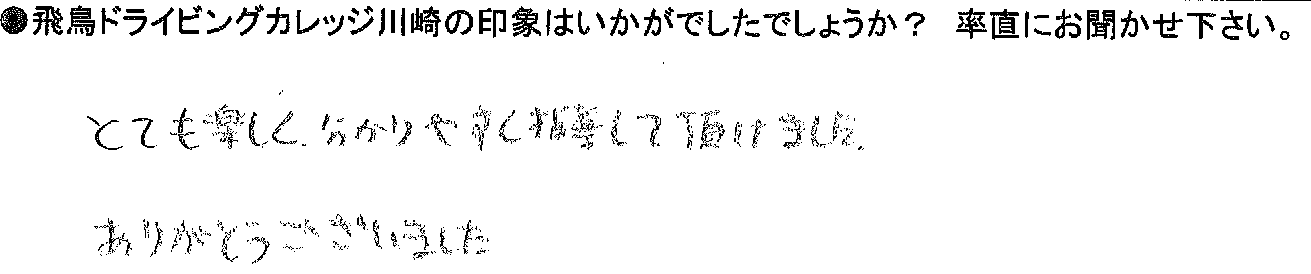 ●飛鳥ドライビングカレッジ川崎の印象はいかがでしたでしょうか？ 率直にお聞かせ下さい。
とても楽しく、分かりやすく指導して頂けました。
ありがとうございました